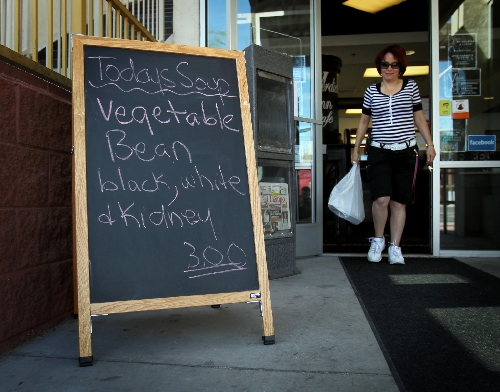 Todays Soup
Vegetable
Bean
black, white
& Kidney
300
facebook